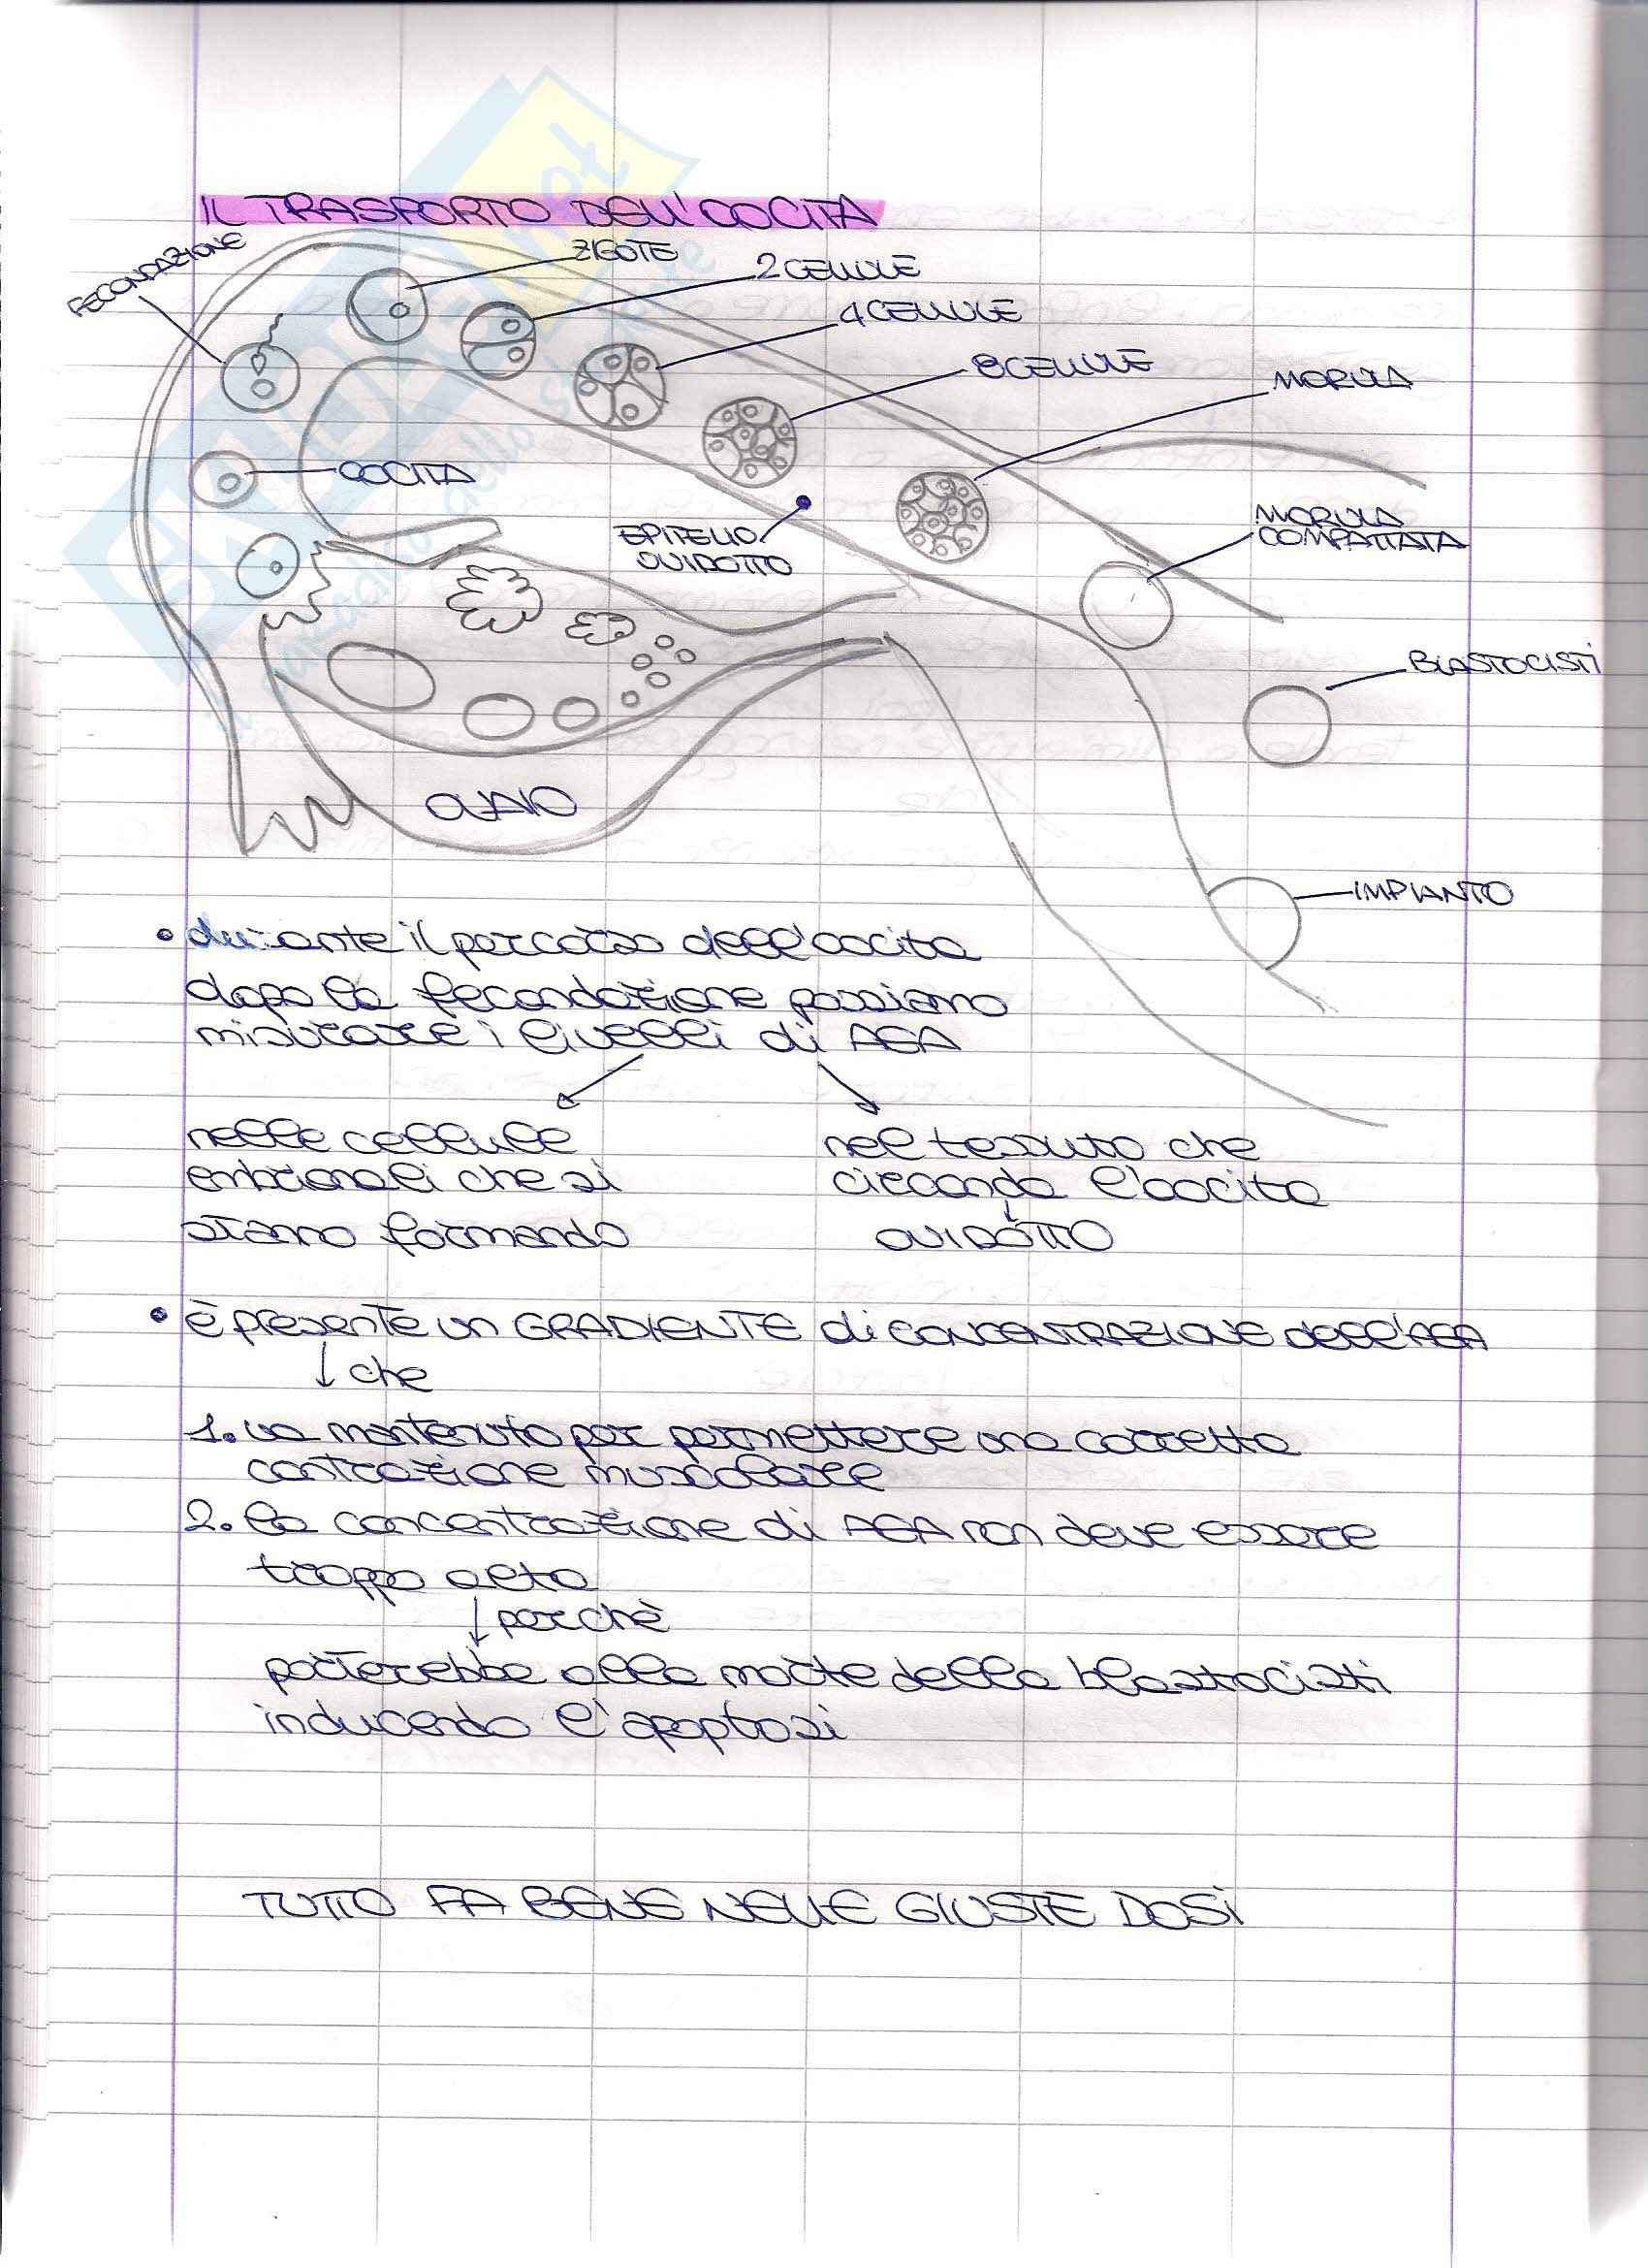 IL TRASPORTO DELL'OOCITA
FECONDAZIONE
ZIGOTE
2 CELLULE
4 CELLULE
8 CELLULE
MORULA
OOCITA
EPITELIO
OVIDOTTO
MORULA
COMPATTATA
BLASTOCISTI
OVAIO
IMPIANTO
• durante il percorso dell'oocita
dopo la fecondazione possiamo
misurare i livelli di AEA
nelle cellule
embrionali che si
stanno formando
nel tessuto che
circonda l'oocita
OVIDOTTO
• è presente un GRADIENTE di CONCENTRAZIONE dell'AEA
↓ che
1. va mantenuto per permettere una corretta
contrazione muscolare
2. la concentrazione di AEA non deve essere
troppo alta
↓ perchè
porterebbe alla morte della blastocisti
inducendo l'apoptosi
TUTTO FA BENE NELLE GIUSTE DOSI